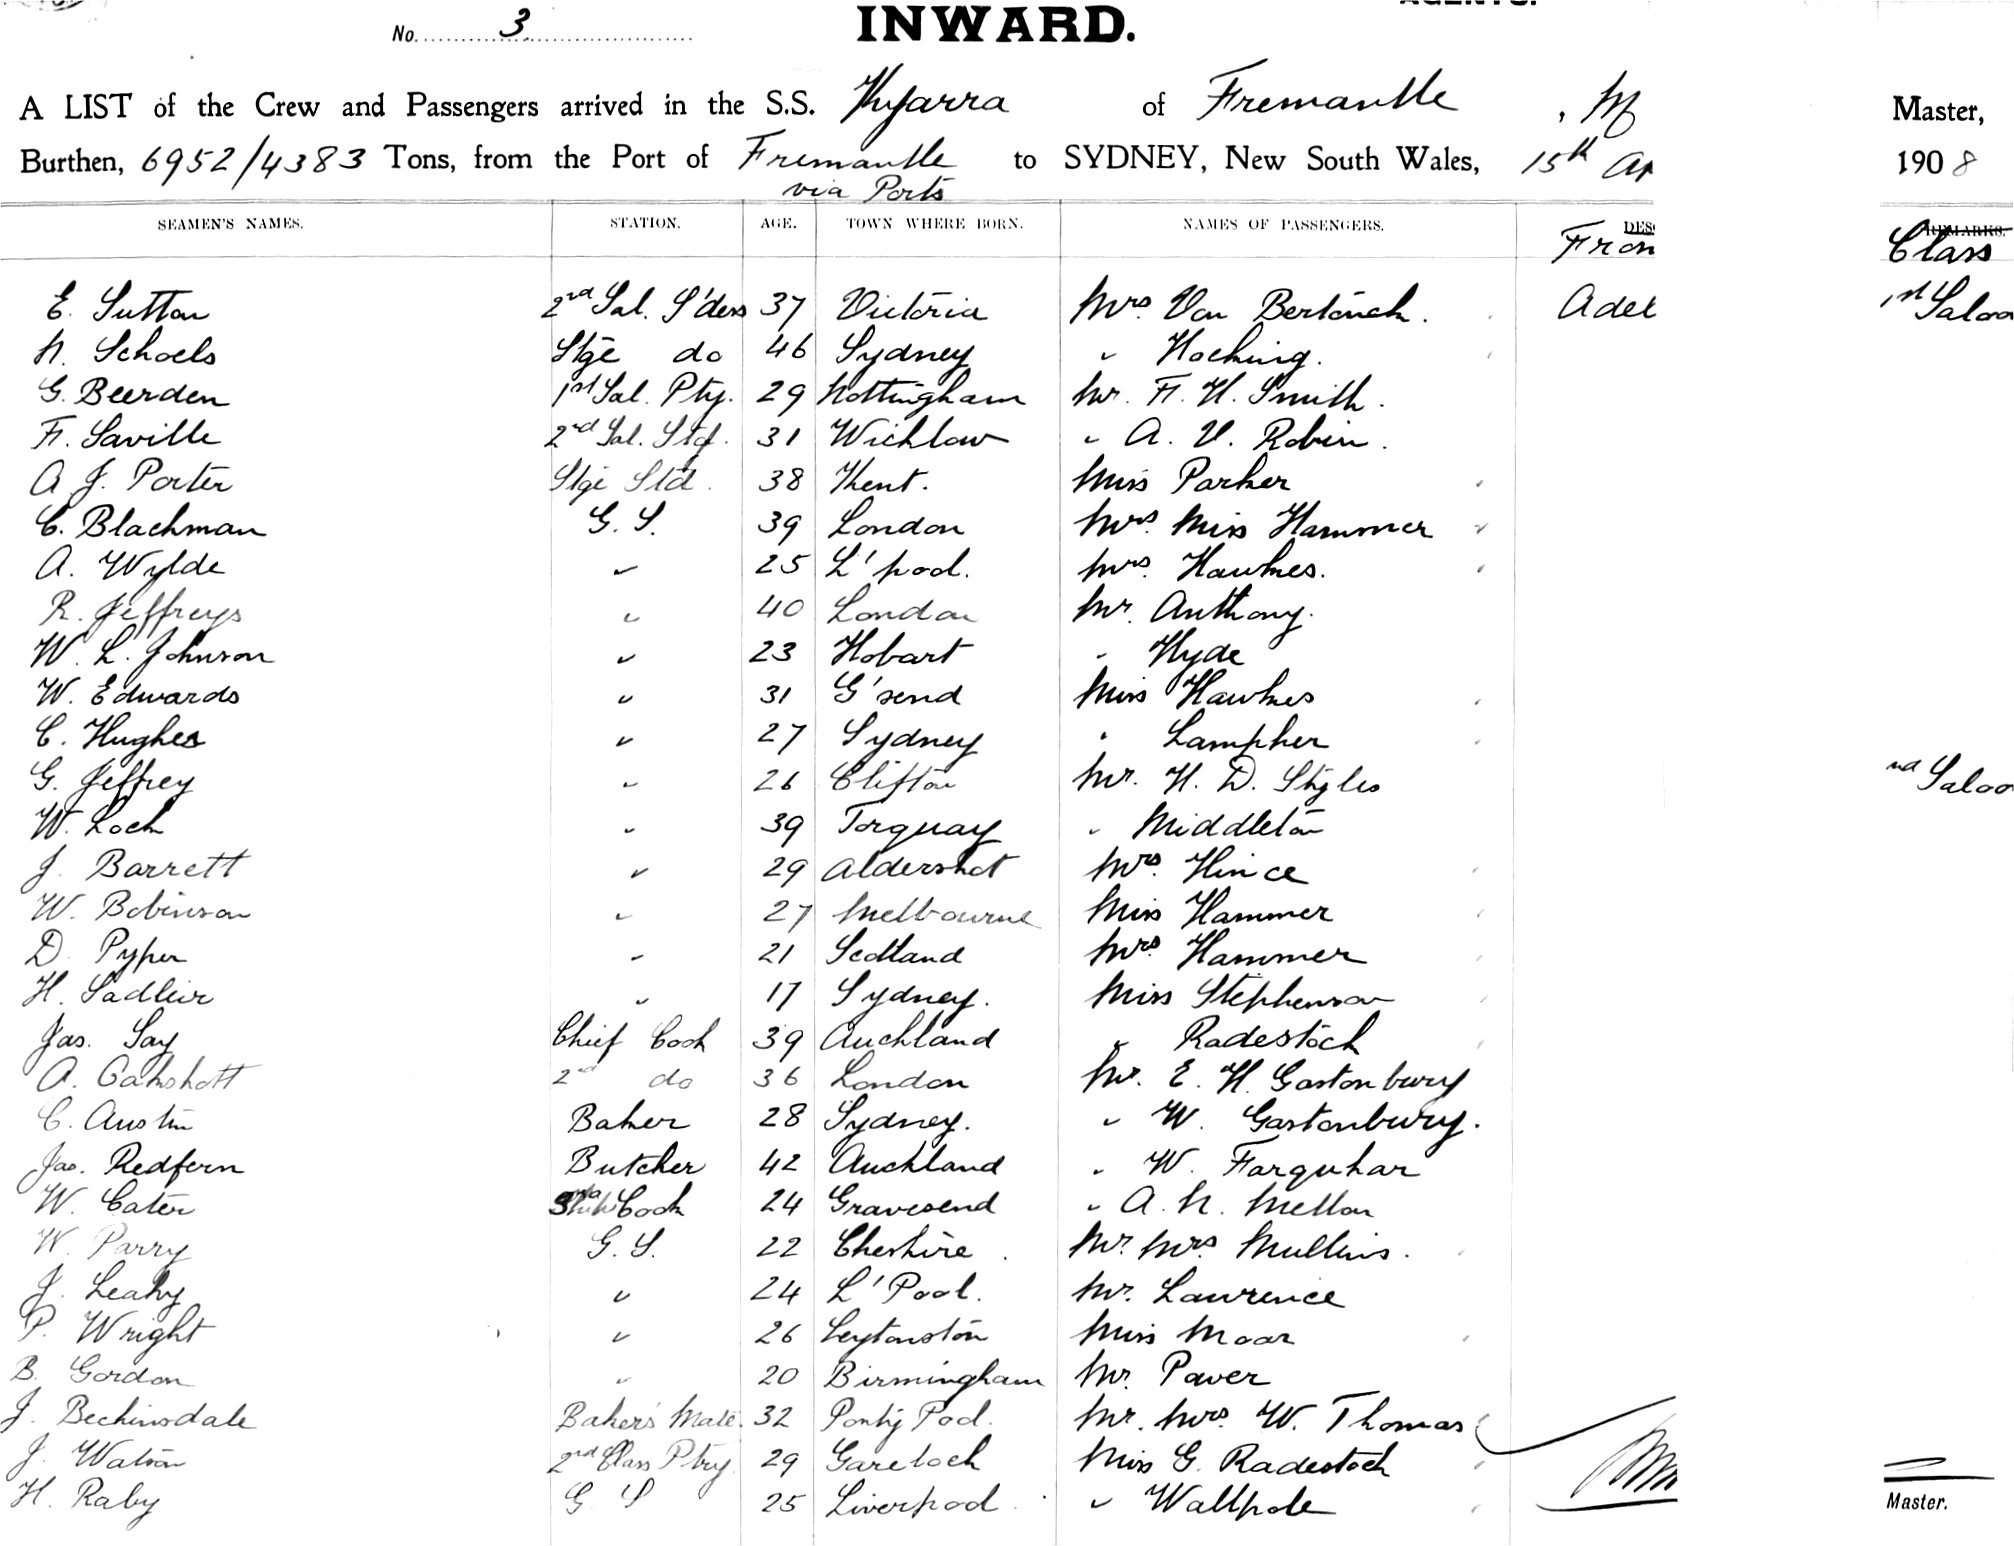 No. 3 INWARD.
A LIST of the Crew and Passengers arrived in the S.S. Kyarra of Fremantle, M Master,
Burthen, 6952/4383 Tons, from the Port of Fremantle to SYDNEY, New South Wales, 15th Ap 1908
via Ports
SEAMEN'S NAMES. STATION. AGE. TOWN WHERE BORN. NAMES OF PASSENGERS. DES REMARKS.
From Class
E. Sutton 2nd Sal. S'ders 37 Victoria Mrs. Von Bertouch. Adel 1st Saloo
N. Schoels Stge do 46 Sydney " Hocking.
G. Beerden 1st Sal. Pty. 29 Nottingham Mr. F. H. Smith.
F. Saville 2nd Sal. Std. 31 Wicklow " A. V. Robin.
A J. Porter Stge Std. 38 Kent. Miss Parker
C. Blackman G. S. 39 London Mrs. Miss Hammer
A. Wylde " 25 L'pool. Mrs. Hawkes.
R. Jeffreys " 40 London Mr. Anthony.
W. L. Johnson " 23 Hobart " Hyde
W. Edwards " 31 G'send Miss Hawkes
C. Hughes " 27 Sydney " Lampher
G. Jeffrey " 26 Clifton Mr. H. D. Styles nd Saloo
W. Lock " 39 Torquay " Middleton
J. Barrett " 29 Aldershot Mrs. Hince
W. Bobinson " 27 Melbourne Miss Hammer
D. Pyper " 21 Scotland Mrs. Hammer
H. Sadleir " 17 Sydney. Miss Stephenson
Jas. Say Chief Cook 39 Auckland " Radestock
A. Oakshott 2nd do 36 London Mr. E. H. Gastonbury
C. Austin Baker 28 Sydney. " W. Gastonbury.
Jas. Redfern Butcher 42 Auckland " W. Farquhar
W. Cater Cook 24 Gravesend " A. N. Mellon
W. Parry G. S. 22 Cheshire. Mr. Mrs Mullins.
J. Leahy " 24 L'Pool. Mr. Lawrence
P. Wright " 26 Leytonston Miss Moar
B. Gordon " 20 Birmingham Mr. Paver
J. Beckinsdale Baker's Mate. 32 Ponty Pool. Mr. Mrs. W. Thomas
J. Watson 2nd Class Ptry. 29 Gareloch Miss G. Radestock
H. Raby G S 25 Liverpool. " Wallpole
Master.